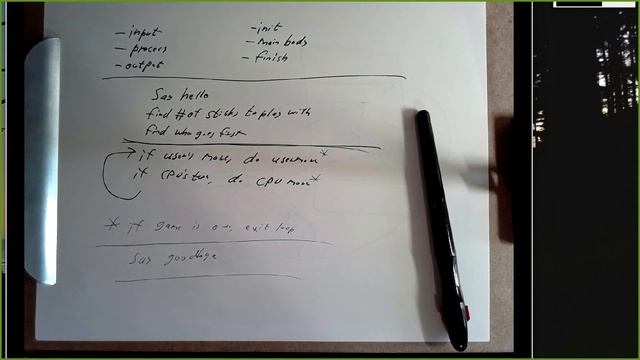 - input
- process
- output
- init
- Main body
- finish
Say hello
find # of sticks to play with
find who goes first
if user's move, do usermove *
if CPU's turn, do CPU move *
* if game is over, exit loop
Say goodbye